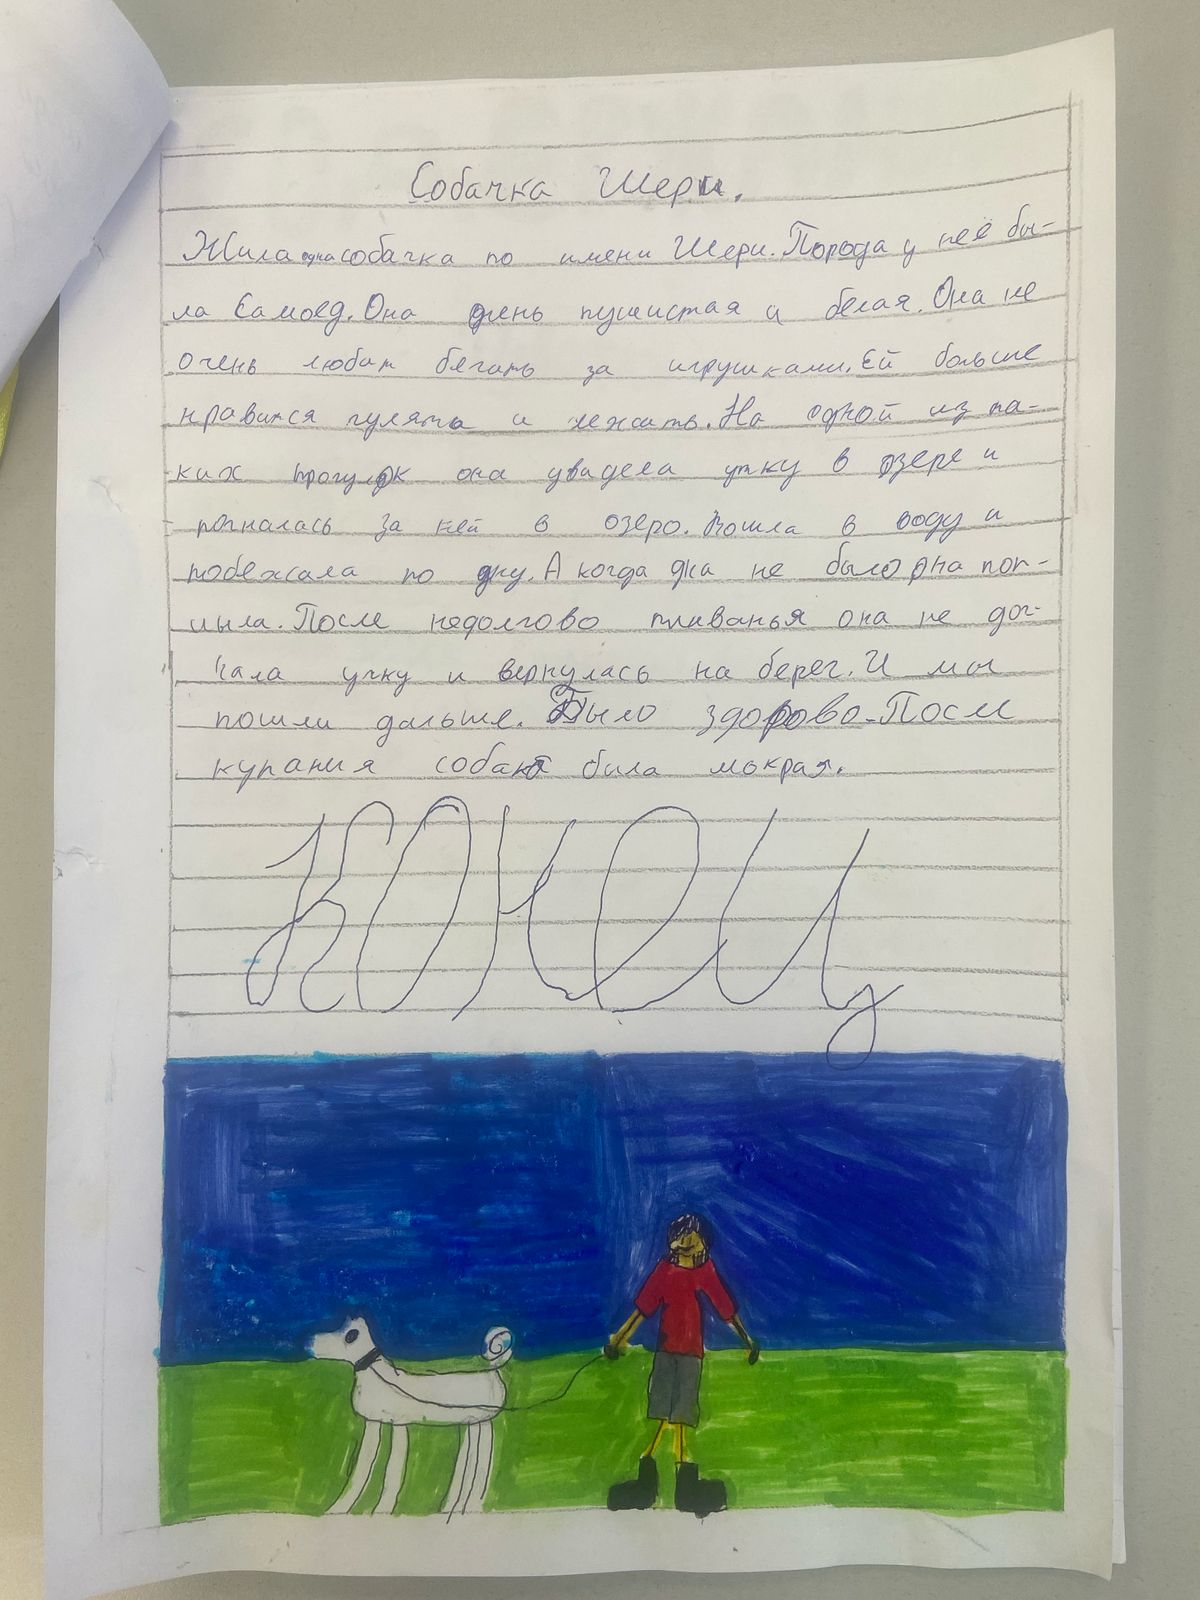 Собачка Шери.
Жила одна собачка по имени Шери. Порода у неё бы-
ла Самоед. Она очень пушистая и белая. Она не
очень любит бегать за игрушками. Ей больше
нравится гулять и лежать. На одной из та-
ких прогулок она увидела утку в озере и
погналась за ней в озеро. Вошла в воду и
побежала по дну. А когда дна не было она поп-
лыла. После недолгово плаванья она не дог-
нала утку и вернулась на берег. И мы
пошли дальше. Было здорово. После
купания собака была мокрая.
Конец